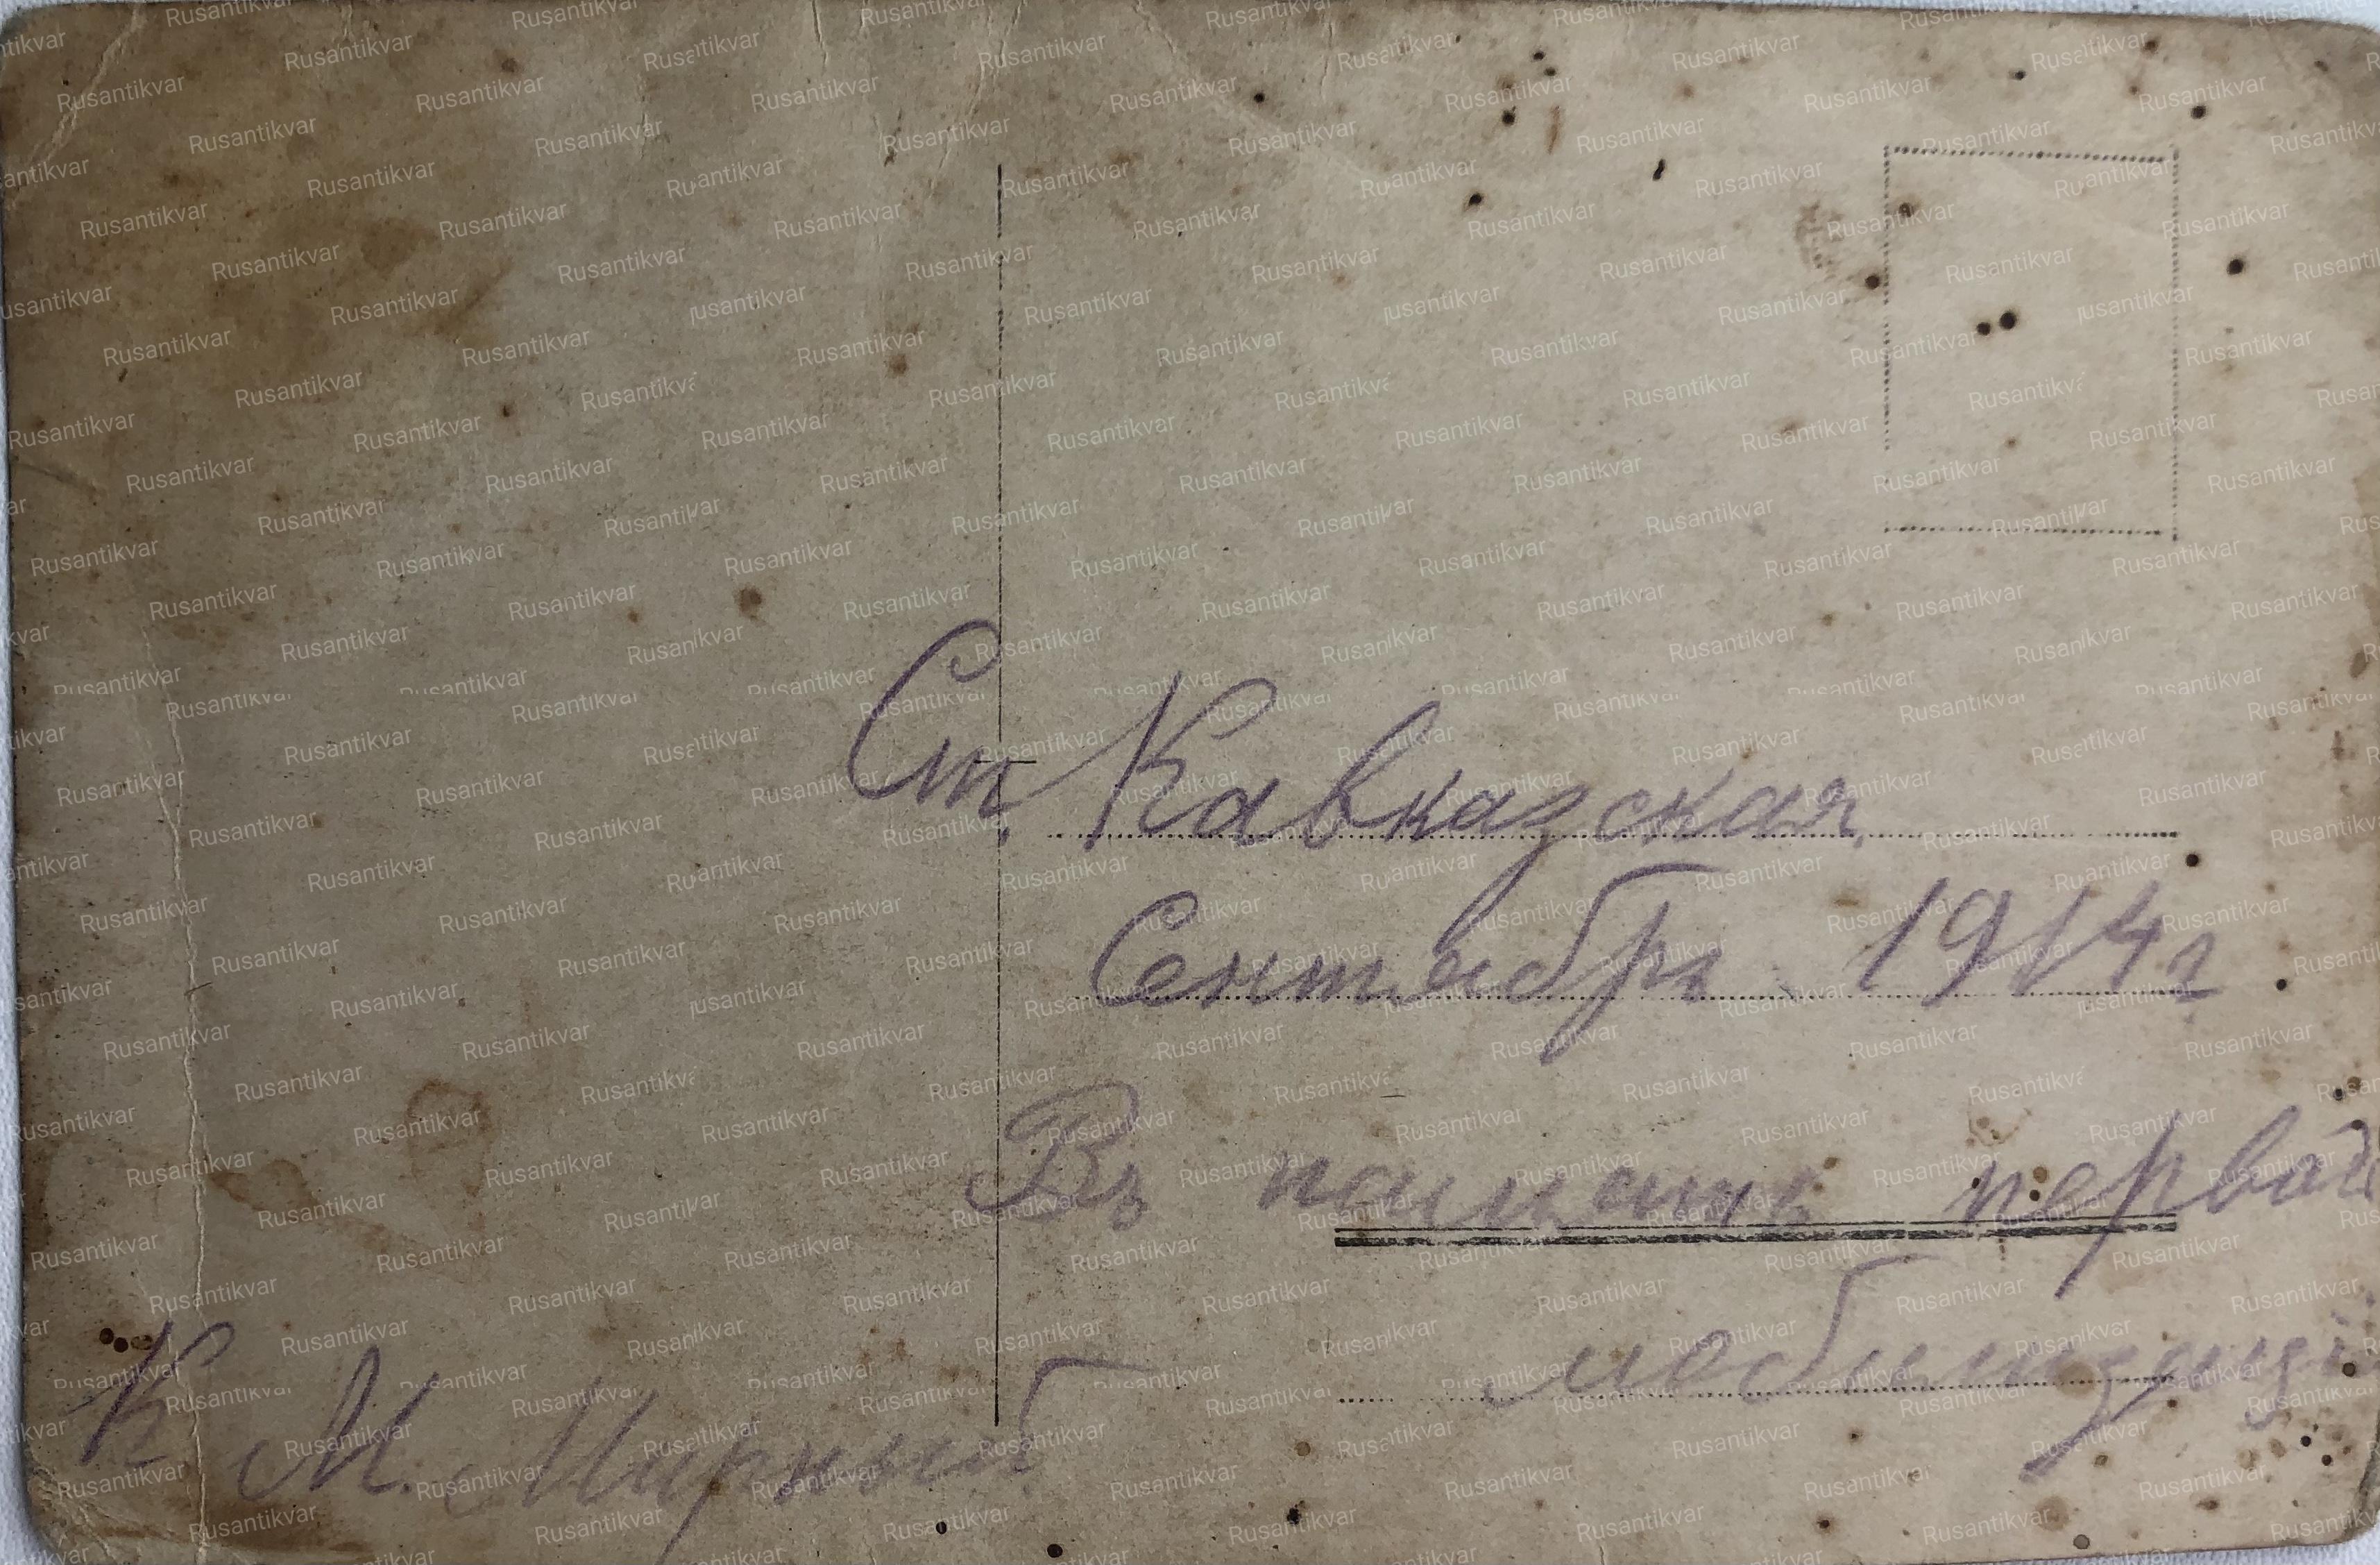 Ст. Кавказская
Сентябрь 1914 г.
Въ память первой
мобилизаці
К М. Мирный
Rusantikvar